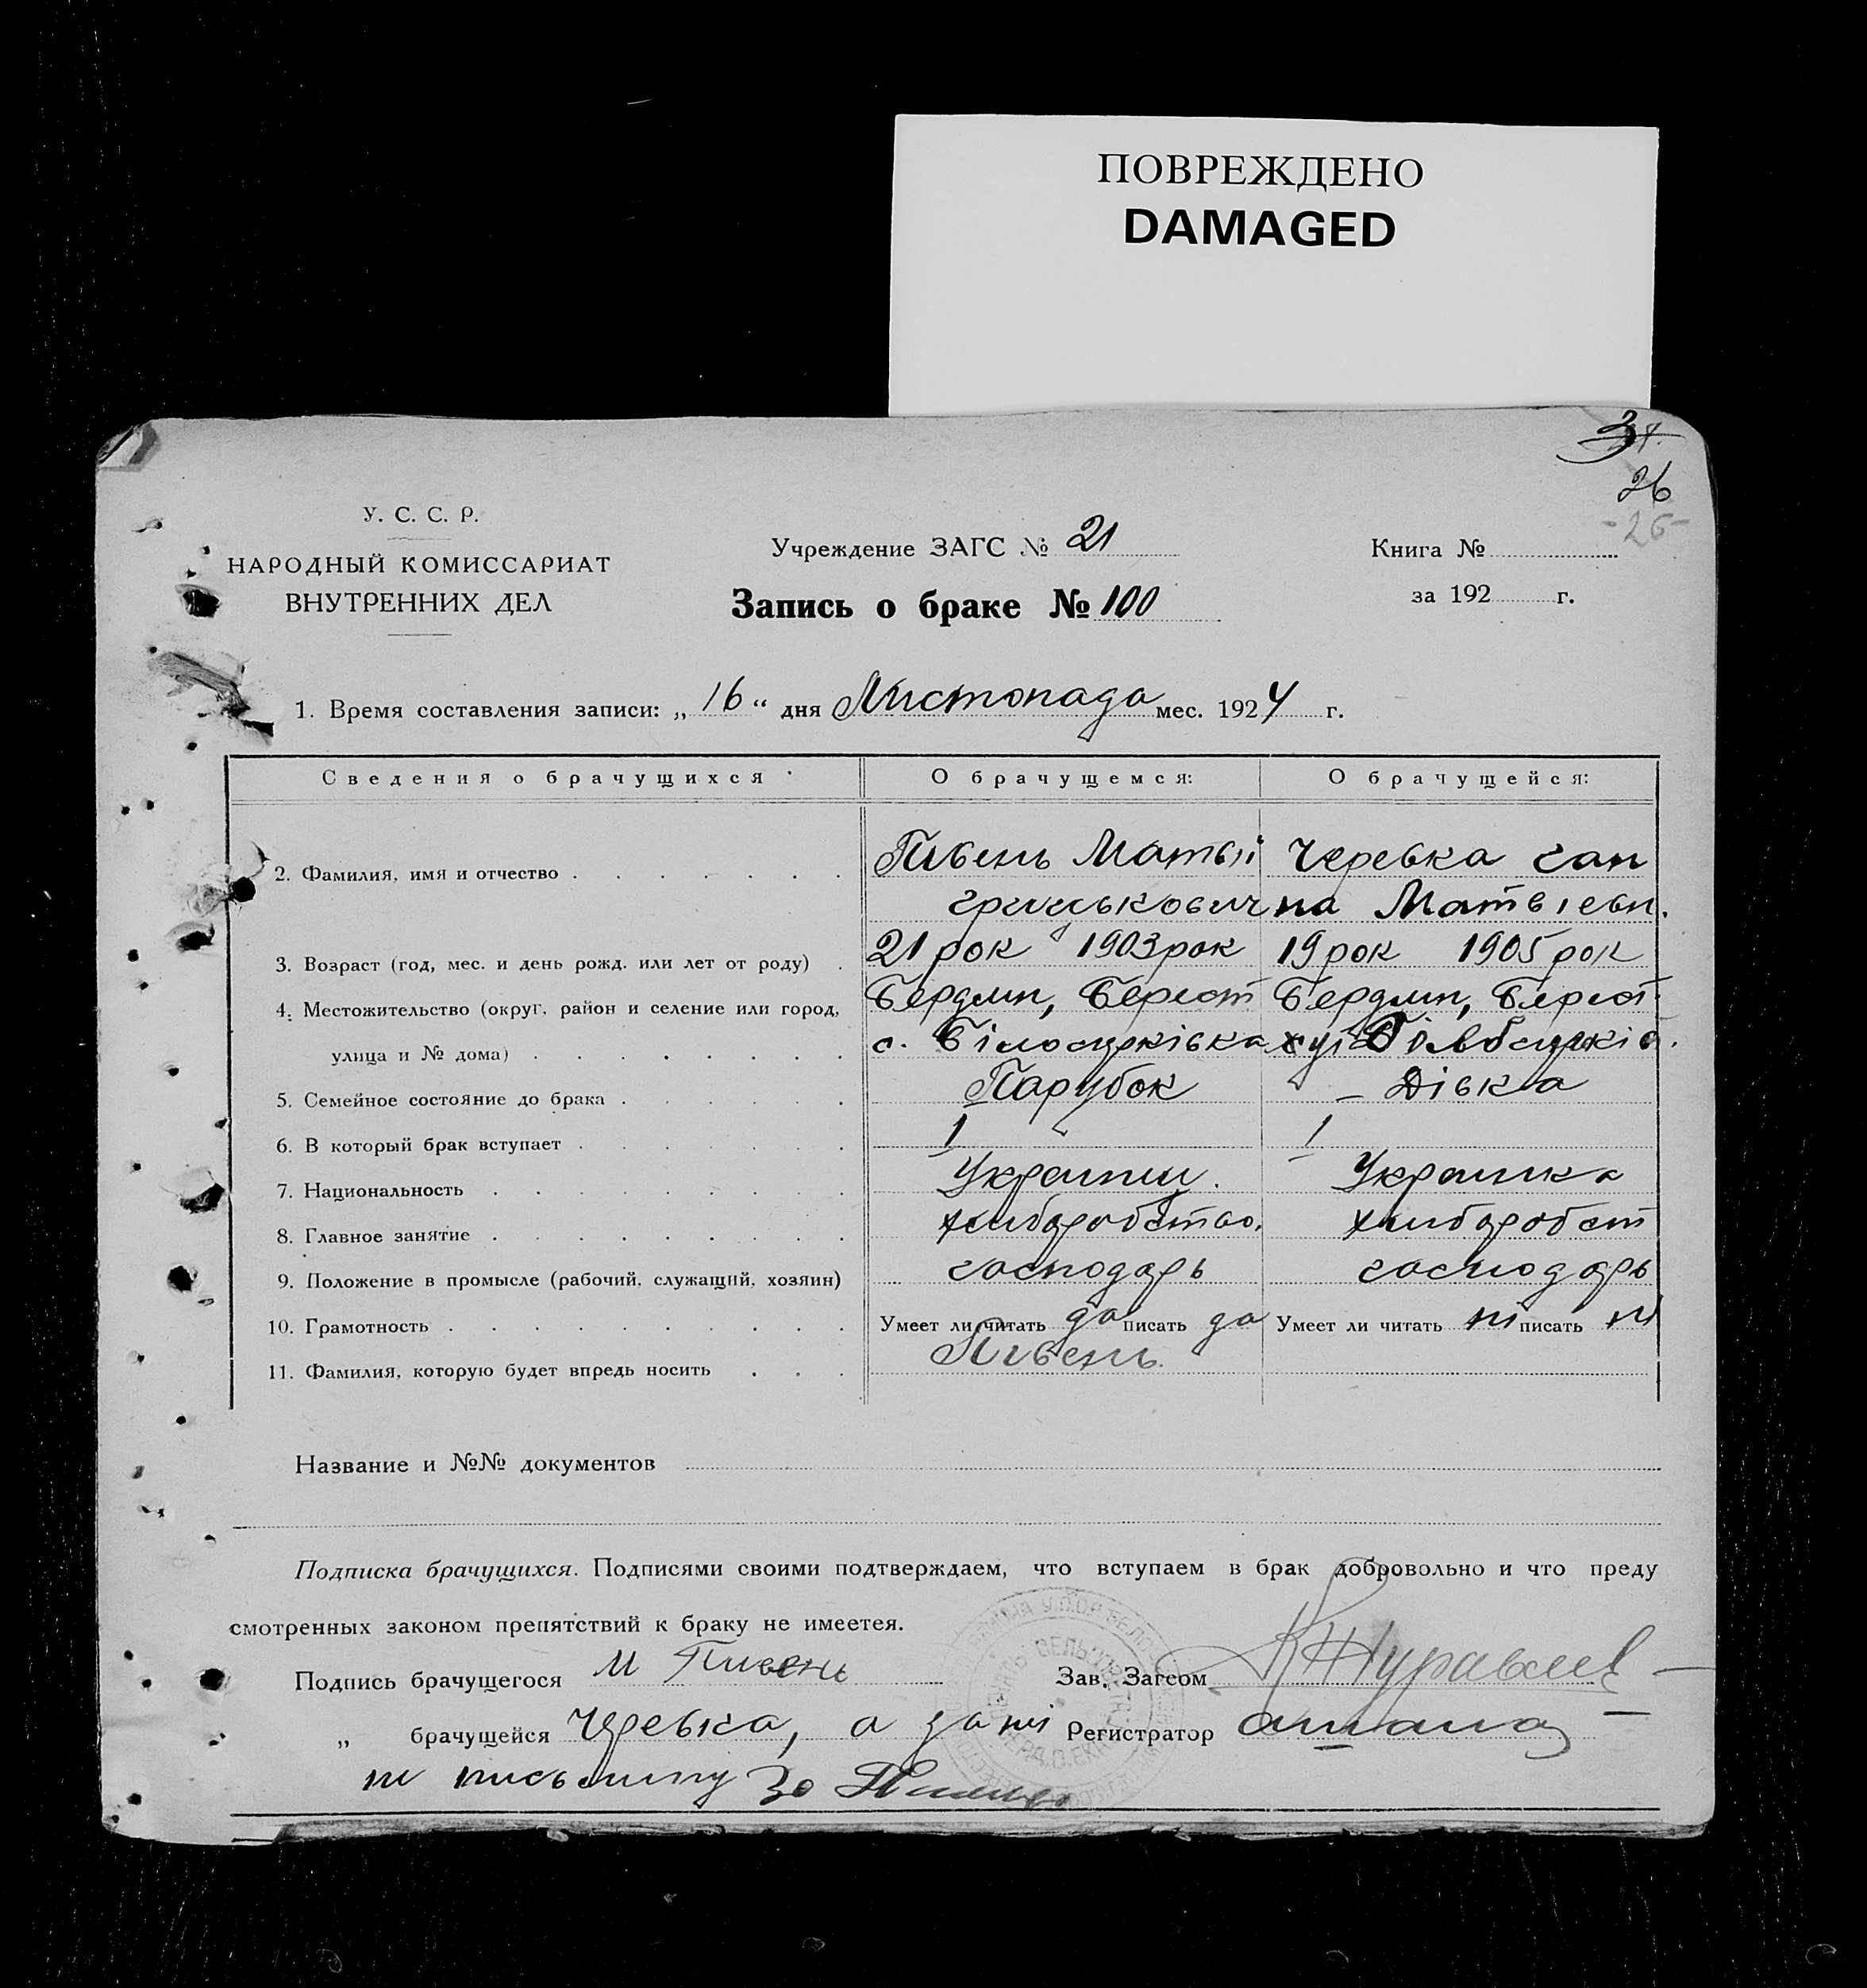 ПОВРЕЖДЕНО
DAMAGED
26
-26-
У. С. С. Р.
НАРОДНЫЙ КОМИССАРИАТ
ВНУТРЕННИХ ДЕЛ
Учреждение ЗАГС № 21
Запись о браке № 100
Книга №
за 192 г.
1. Время составления записи: „ 16 “ дня Листопада мес. 1924 г.
Сведения о брачущихся О брачущемся: О брачущейся:
2. Фамилия, имя и отчество Пивень Матвій Черевка ган
грицькович на Матвіевн.
3. Возраст (год, мес. и день рожд. или лет от роду) 21 рок 1903 рок 19 рок 1905 рок
4. Местожительство (округ, район и селение или город, Бердян, Берест Бердян, Берест.
улица и № дома) с. Білоцерківка
5. Семейное состояние до брака Парубок – Дівка
6. В который брак вступает 1 1
7. Национальность Украинц. Украинка
8. Главное занятие хлиборобство. хлиборобст
9. Положение в промысле (рабочий, служащий, хозяин) господарь господарь
10. Грамотность Умеет ли читать да писать да Умеет ли читать ні писать ні
11. Фамилия, которую будет впредь носить Пивень.
Название и №№ документов
Подписка брачущихся. Подписями своими подтверждаем, что вступаем в брак добровольно и что преду
смотренных законом препятствий к браку не имеетея.
Подпись брачущегося М Пивень Зав. Загсом Журавлев
„ брачущейся Черевка, а за ні Регистратор
письмину